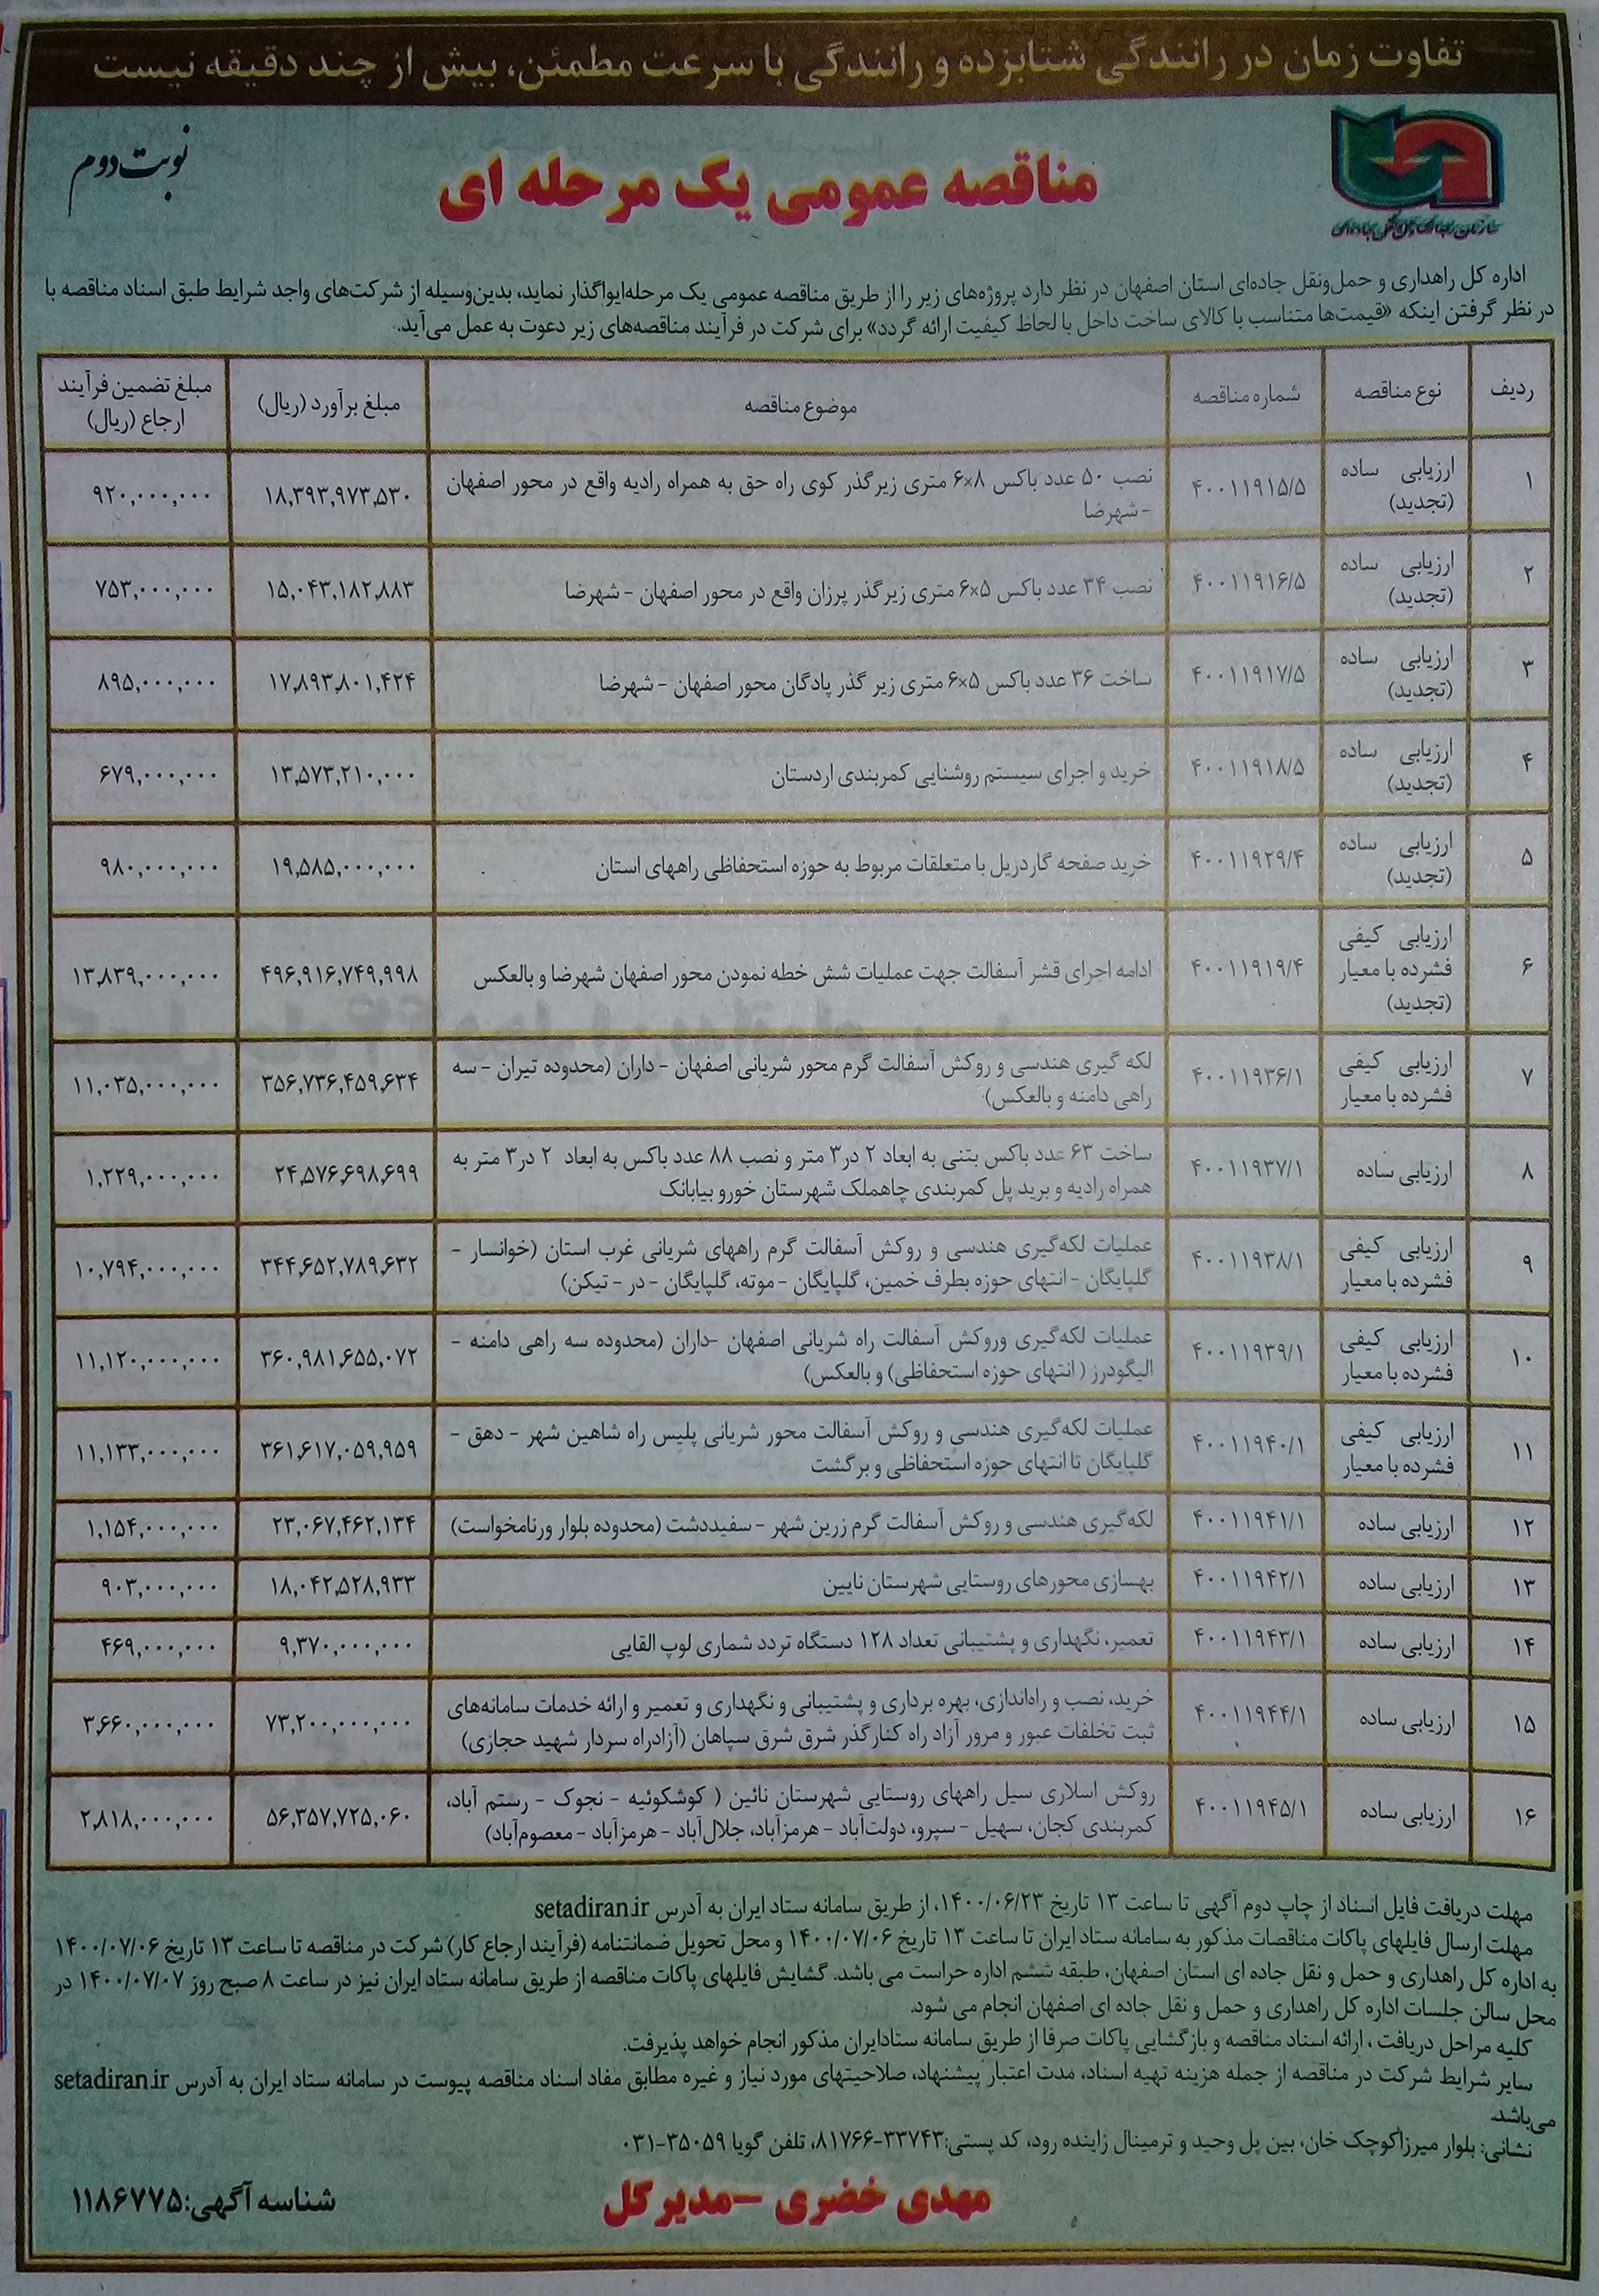 تفاوت زمان در رانندگی شتابزده و رانندگی با سرعت مطمئن، بیش از چند دقیقه نیست
سازمان راهداری و حمل و نقل جاده‌ای
نوبت دوم
مناقصه عمومی یک مرحله ای
اداره کل راهداری و حمل‌ونقل جاده‌ای استان اصفهان در نظر دارد پروژه‌های زیر را از طریق مناقصه عمومی یک مرحله‌ای‌واگذار نماید، بدین‌وسیله از شرکت‌های واجد شرایط طبق اسناد مناقصه با
در نظر گرفتن اینکه «قیمت‌ها متناسب با کالای ساخت داخل با لحاظ کیفیت ارائه گردد» برای شرکت در فرآیند مناقصه‌های زیر دعوت به عمل می‌آید.
ردیف نوع مناقصه شماره مناقصه موضوع مناقصه مبلغ برآورد (ریال) مبلغ تضمین فرآیند
ارجاع (ریال)
۱ ارزیابی ساده ۴۰۰۱۱۹۱۵/۵ نصب ۵۰ عدد باکس ۸×۶ متری زیرگذر کوی راه حق به همراه رادیه واقع در محور اصفهان ۱۸,۳۹۳,۹۷۳,۵۳۰ ۹۲۰,۰۰۰,۰۰۰
(تجدید) - شهرضا
۲ ارزیابی ساده ۴۰۰۱۱۹۱۶/۵ نصب ۳۴ عدد باکس ۵×۶ متری زیرگذر پرزان واقع در محور اصفهان - شهرضا ۱۵,۰۴۳,۱۸۲,۸۸۳ ۷۵۳,۰۰۰,۰۰۰
(تجدید)
۳ ارزیابی ساده ۴۰۰۱۱۹۱۷/۵ ساخت ۳۶ عدد باکس ۵×۶ متری زیر گذر پادگان محور اصفهان - شهرضا ۱۷,۸۹۳,۸۰۱,۴۲۴ ۸۹۵,۰۰۰,۰۰۰
(تجدید)
۴ ارزیابی ساده ۴۰۰۱۱۹۱۸/۵ خرید و اجرای سیستم روشنایی کمربندی اردستان ۱۳,۵۷۳,۲۱۰,۰۰۰ ۶۷۹,۰۰۰,۰۰۰
(تجدید)
۵ ارزیابی ساده ۴۰۰۱۱۹۲۹/۴ خرید صفحه گاردریل با متعلقات مربوط به حوزه استحفاظی راههای استان ۱۹,۵۸۵,۰۰۰,۰۰۰ ۹۸۰,۰۰۰,۰۰۰
(تجدید)
۶ ارزیابی کیفی ۴۰۰۱۱۹۱۹/۴ ادامه اجرای قشر آسفالت جهت عملیات شش خطه نمودن محور اصفهان شهرضا و بالعکس ۴۹۶,۹۱۶,۷۴۹,۹۹۸ ۱۳,۸۳۹,۰۰۰,۰۰۰
فشرده با معیار
(تجدید)
۷ ارزیابی کیفی ۴۰۰۱۱۹۳۶/۱ لکه گیری هندسی و روکش آسفالت گرم محور شریانی اصفهان - داران (محدوده تیران - سه ۳۵۶,۷۳۶,۴۵۹,۶۳۴ ۱۱,۰۳۵,۰۰۰,۰۰۰
فشرده با معیار راهی دامنه و بالعکس)
۸ ارزیابی ساده ۴۰۰۱۱۹۳۷/۱ ساخت ۶۳ عدد باکس بتنی به ابعاد ۲ در۳ متر و نصب ۸۸ عدد باکس به ابعاد ۲ در۳ متر به ۲۴,۵۷۶,۶۹۸,۶۹۹ ۱,۲۲۹,۰۰۰,۰۰۰
همراه رادیه و برید پل کمربندی چاهملک شهرستان خورو بیابانک
۹ ارزیابی کیفی ۴۰۰۱۱۹۳۸/۱ عملیات لکه‌گیری هندسی و روکش آسفالت گرم راههای شریانی غرب استان (خوانسار - ۳۴۴,۶۵۲,۷۸۹,۶۳۲ ۱۰,۷۹۴,۰۰۰,۰۰۰
فشرده با معیار گلپایگان - انتهای حوزه بطرف خمین، گلپایگان - موته، گلپایگان - در - تیکن)
۱۰ ارزیابی کیفی ۴۰۰۱۱۹۳۹/۱ عملیات لکه‌گیری وروکش آسفالت راه شریانی اصفهان -داران (محدوده سه راهی دامنه - ۳۶۰,۹۸۱,۶۵۵,۰۷۲ ۱۱,۱۲۰,۰۰۰,۰۰۰
فشرده با معیار الیگودرز ( انتهای حوزه استحفاظی) و بالعکس)
۱۱ ارزیابی کیفی ۴۰۰۱۱۹۴۰/۱ عملیات لکه‌گیری هندسی و روکش آسفالت محور شریانی پلیس راه شاهین شهر - دهق - ۳۶۱,۶۱۷,۰۵۹,۹۵۹ ۱۱,۱۳۳,۰۰۰,۰۰۰
فشرده با معیار گلپایگان تا انتهای حوزه استحفاظی و برگشت
۱۲ ارزیابی ساده ۴۰۰۱۱۹۴۱/۱ لکه‌گیری هندسی و روکش آسفالت گرم زرین شهر - سفیددشت (محدوده بلوار ورنامخواست) ۲۳,۰۶۷,۴۶۲,۱۳۴ ۱,۱۵۴,۰۰۰,۰۰۰
۱۳ ارزیابی ساده ۴۰۰۱۱۹۴۲/۱ بهسازی محورهای روستایی شهرستان نایین ۱۸,۰۴۲,۵۲۸,۹۳۳ ۹۰۳,۰۰۰,۰۰۰
۱۴ ارزیابی ساده ۴۰۰۱۱۹۴۳/۱ تعمیر، نگهداری و پشتیبانی تعداد ۱۲۸ دستگاه تردد شماری لوپ القایی ۹,۳۷۰,۰۰۰,۰۰۰ ۴۶۹,۰۰۰,۰۰۰
۱۵ ارزیابی ساده ۴۰۰۱۱۹۴۴/۱ خرید، نصب و راه‌اندازی، بهره برداری و پشتیبانی و نگهداری و تعمیر و ارائه خدمات سامانه‌های ۷۳,۲۰۰,۰۰۰,۰۰۰ ۳,۶۶۰,۰۰۰,۰۰۰
ثبت تخلفات عبور و مرور آزاد راه کنارگذر شرق شرق سپاهان (آزادراه سردار شهید حجازی)
۱۶ ارزیابی ساده ۴۰۰۱۱۹۴۵/۱ روکش اسلاری سیل راههای روستایی شهرستان نائین ( کوشکوئیه - نجوک - رستم آباد، ۵۶,۳۵۷,۷۲۵,۰۶۰ ۲,۸۱۸,۰۰۰,۰۰۰
کمربندی کجان، سهیل - سپرو، دولت‌آباد - هرمزآباد، جلال‌آباد - هرمزآباد - معصوم‌آباد)
مهلت دریافت فایل اسناد از چاپ دوم آگهی تا ساعت ۱۳ تاریخ ۱۴۰۰/۰۶/۲۳، از طریق سامانه ستاد ایران به آدرس setadiran.ir
مهلت ارسال فایلهای پاکات مناقصات مذکور به سامانه ستاد ایران تا ساعت ۱۳ تاریخ ۱۴۰۰/۰۷/۰۶ و محل تحویل ضمانتنامه (فرآیند ارجاع کار) شرکت در مناقصه تا ساعت ۱۳ تاریخ ۱۴۰۰/۰۷/۰۶
به اداره کل راهداری و حمل و نقل جاده ای استان اصفهان، طبقه ششم اداره حراست می باشد. گشایش فایلهای پاکات مناقصه از طریق سامانه ستاد ایران نیز در ساعت ۸ صبح روز ۱۴۰۰/۰۷/۰۷ در
محل سالن جلسات اداره کل راهداری و حمل و نقل جاده ای اصفهان انجام می شود.
کلیه مراحل دریافت ، ارائه اسناد مناقصه و بازگشایی پاکات صرفا از طریق سامانه ستادایران مذکور انجام خواهد پذیرفت.
سایر شرایط شرکت در مناقصه از جمله هزینه تهیه اسناد، مدت اعتبار پیشنهاد، صلاحیتهای مورد نیاز و غیره مطابق مفاد اسناد مناقصه پیوست در سامانه ستاد ایران به آدرس setadiran.ir
می‌باشد.
نشانی: بلوار میرزاکوچک خان، بین پل وحید و ترمینال زاینده رود، کد پستی:۳۳۷۴۳-۸۱۷۶۶، تلفن گویا ۳۵۰۵۹-۰۳۱
مهدی خضری – مدیرکل
شناسه آگهی:۱۱۸۶۷۷۵